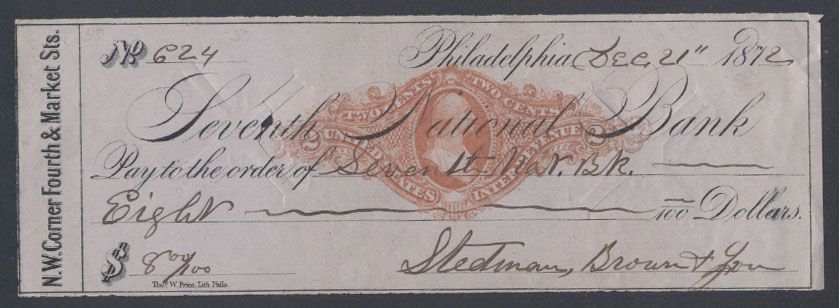 N.W. Corner Fourth & Market Sts.
No 624 Philadelphia, Dec. 21" 1872
TWO CENTS TWO CENTS
Seventh National Bank
2 UNITED STATES INTER. REVENUE 2
Pay to the order of Seventh Nat. Bk.
Eight — 100 Dollars.
$ 8 00/100 Stedman, Brown &
Thos. W. Price, Lith. Phila.